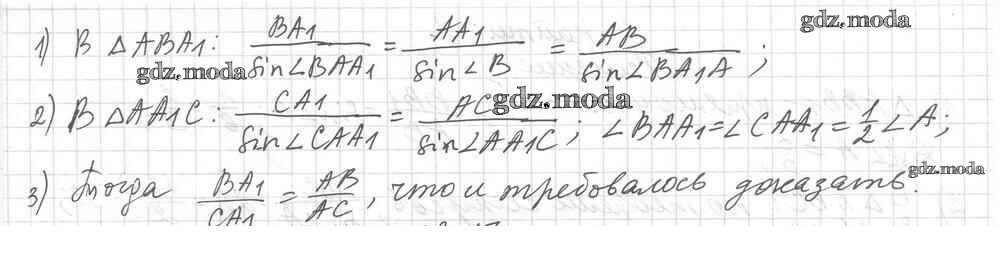 gdz.moda
1) В △ABA₁: BA₁/sin∠BAA₁ = AA₁/sin∠B = AB/sin∠BA₁A;
gdz.moda
2) В △AA₁C: CA₁/sin∠CAA₁ = AC/sin∠AA₁C; ∠BAA₁=∠CAA₁=1/2∠A;
gdz.moda
3) Тогда BA₁/CA₁ = AB/AC, что и требовалось доказать.
gdz.moda